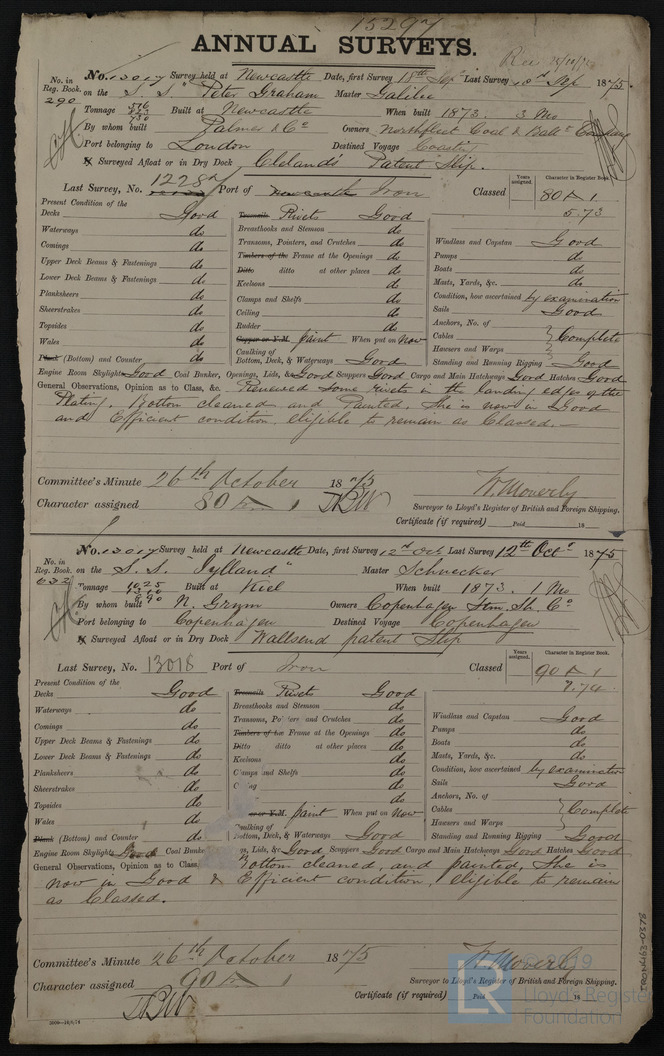 15297
ANNUAL SURVEYS.
Rec
No. in Reg. Book.
290
No. 13017 Survey held at Newcastle Date, first Survey 18th Sep Last Survey Sep 1875
on the S. S. "Peter Graham Master
Tonnage 576 730 Built at Newcastle When built 1873. 3 Mo
By whom built Palmer & Co Owners Northfleet Coal & Ball Company
Port belonging to London Destined Voyage Coasting
Surveyed Afloat or in Dry Dock Cleland's Patent Slip.
Last Survey, No. Port of Newcastle Iron Classed 80 A 1
Years assigned. Character in Register Book.
5.73
Present Condition of the
Decks Good
Waterways do
Comings do
Upper Deck Beams & Fastenings do
Lower Deck Beams & Fastenings do
Planksheers do
Sheerstrakes do
Topsides do
Wales do
Plank (Bottom) and Counter do
Treenails Rivets Good
Breasthooks and Stemson do
Transoms, Pointers, and Crutches do
Timbers of the Frame at the Openings do
Ditto ditto at other places do
Keelsons do
Clamps and Shelfs do
Ceiling do
Rudder do
Copper or Y.M. paint When put on Now
Caulking of Bottom, Deck, & Waterways Good
Windlass and Capstan Good
Pumps do
Boats do
Masts, Yards, &c. do
Condition, how ascertained by examination
Sails Good
Anchors, No. of
Cables Complete
Hawsers and Warps
Standing and Running Rigging Good
Engine Room Skylights Good Coal Bunker, Openings, Lids, &c Good Scuppers Good Cargo and Main Hatchways Good Hatches Good
General Observations, Opinion as to Class, &c. Renewed some rivets in the landing edges of the
Plating. Bottom cleaned and Painted. She is now in Good
and Efficient condition, eligible to remain as Classed.
Committee's Minute 26th October 1875
Character assigned 80 A 1
W. Moverly
Surveyor to Lloyd's Register of British and Foreign Shipping.
Certificate (if required) Paid 18
No. in Reg. Book.
632
No. 13017 Survey held at Newcastle Date, first Survey 12th Oct Last Survey 12th Octr 1875
on the S. S. "Jylland" Master Schnecker
Tonnage 1025 890 Built at Kiel When built 1873. 1 Mo
By whom built N. Owners Copenhagen Stm. Sh. Co.
Port belonging to Copenhagen Destined Voyage Copenhagen
Surveyed Afloat or in Dry Dock Wallsend patent Slip
Last Survey, No. 13018 Port of Iron Classed 90 A 1
Years assigned. Character in Register Book.
7.74
Present Condition of the
Decks Good
Waterways do
Comings do
Upper Deck Beams & Fastenings do
Lower Deck Beams & Fastenings do
Planksheers do
Sheerstrakes do
Topsides do
Wales do
Plank (Bottom) and Counter do
Treenails Rivets Good
Breasthooks and Stemson do
Transoms, Pointers and Crutches do
Timbers of the Frame at the Openings do
Ditto ditto at other places do
Keelsons do
Clamps and Shelfs do
do
do
paint When put on Now
Caulking of Bottom, Deck, & Waterways Good
Windlass and Capstan Good
Pumps do
Boats do
Masts, Yards, &c. do
Condition, how ascertained by examination
Sails Good
Anchors, No. of
Cables Complete
Hawsers and Warps
Standing and Running Rigging Good
Engine Room Skylights Good Coal Bunke Lids, &c Good Scuppers Good Cargo and Main Hatchways Good Hatches Good
General Observations, Opinion as to Class, Bottom cleaned, and painted, She is
now in Good & Efficient condition, eligible to remain
as Classed.
Committee's Minute 26th October 1875
Character assigned 90 A 1
W. Moverly
Surveyor to Lloyd's Register of British and Foreign Shipping.
Certificate (if required) Paid 18
LR
© 2019
Lloyd's Register
Foundation